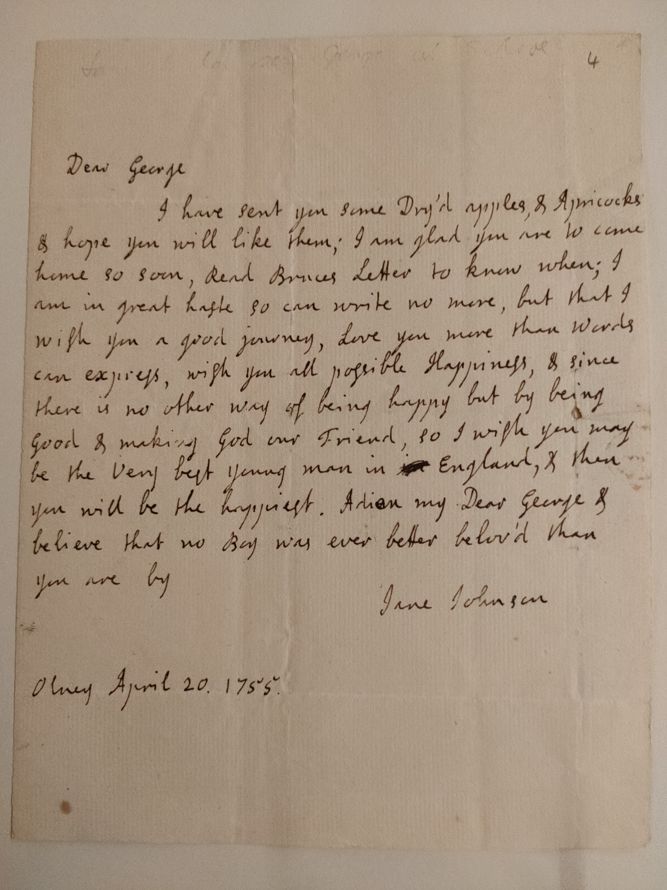 4
Dear George
I have sent you some Dry'd apples, & Apricocks
& hope you will like them; I am glad you are to come
home so soon, Read Bruces Letter to know when; I
am in great haste so can write no more, but that I
wish you a good journey, Love you more than words
can express, wish you all possible Happiness, & since
there is no other way of being happy but by being
Good & making God our Friend, so I wish you may
be the Very best young man in England, & then
you will be the happiest. Adieu my Dear George &
believe that no Boy was ever better belov'd than
you are by
Jane Johnson
Olney April 20. 1755.